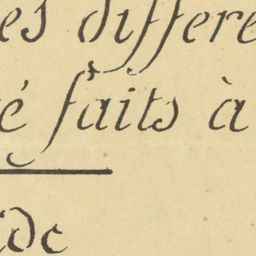 es differe
é faits à
ide